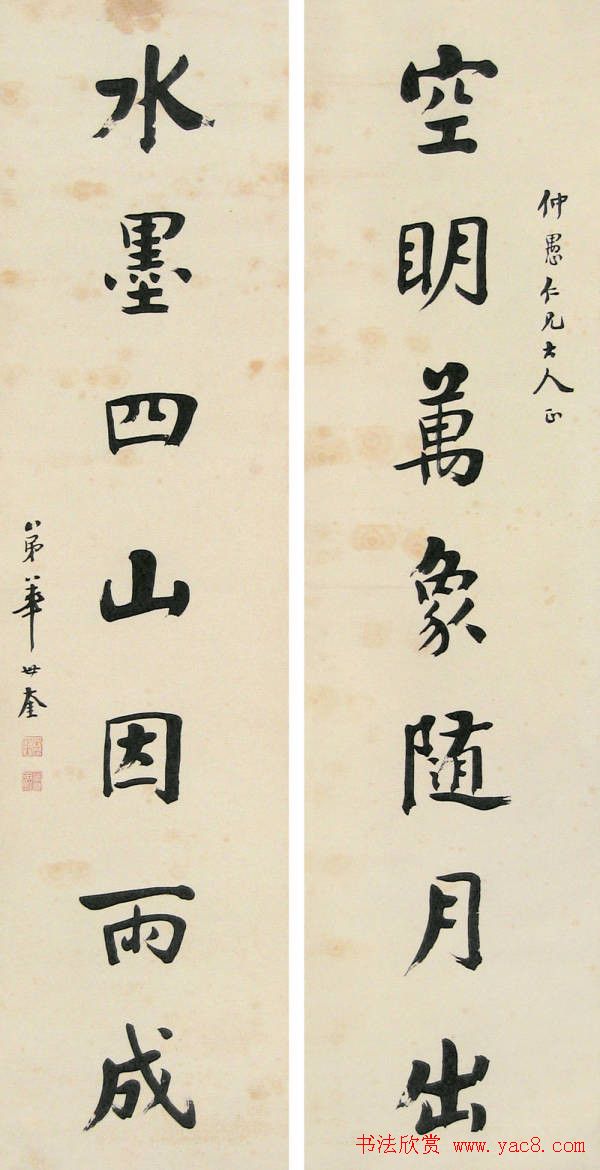 仲愚仁兄大人正
空明萬象隨月出
水墨四山因雨成
弟華世奎
书法欣赏 www.yac8.com